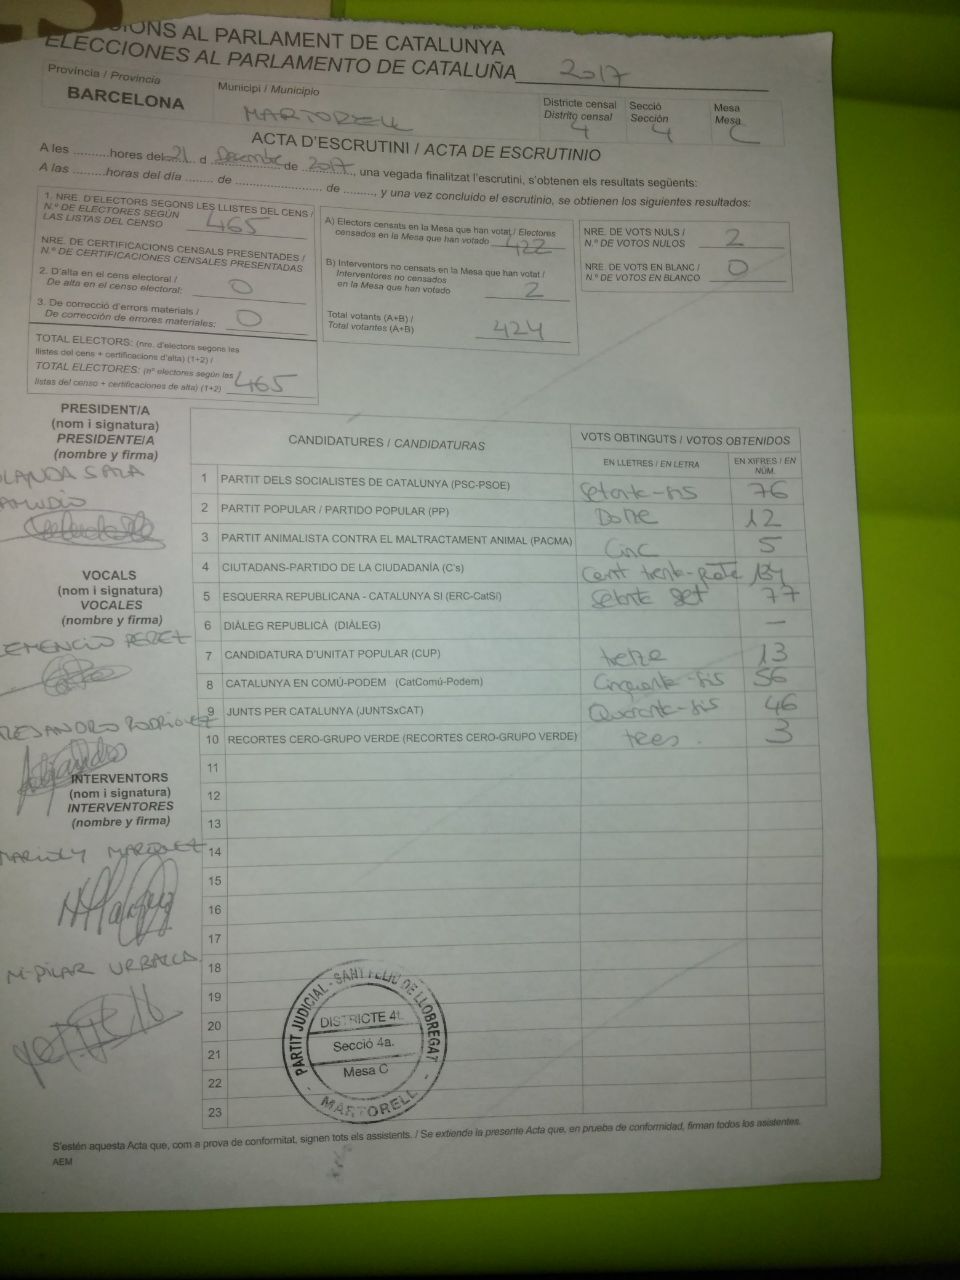 IONS AL PARLAMENT DE CATALUNYA
ELECCIONES AL PARLAMENTO DE CATALUÑA 2017
Província / Provincia
BARCELONA
Municipi / Municipio
MARTORELL
Districte censal
Distrito censal
4
Secció
Sección
4
Mesa
Mesa
C
ACTA D'ESCRUTINI / ACTA DE ESCRUTINIO
A les ..........hores del 21 d Desembre de 2017, una vegada finalitzat l'escrutini, s'obtenen els resultats següents:
A las .........horas del día ........ de .......................... de .......... y una vez concluido el escrutinio, se obtienen los siguientes resultados:
1. NRE. D'ELECTORS SEGONS LES LLISTES DEL CENS /
N.º DE ELECTORES SEGÚN
LAS LISTAS DEL CENSO 465
NRE. DE CERTIFICACIONS CENSALS PRESENTADES /
N.º DE CERTIFICACIONES CENSALES PRESENTADAS
2. D'alta en el cens electoral /
De alta en el censo electoral: 0
3. De correcció d'errors materials /
De corrección de errores materiales: 0
TOTAL ELECTORS: (nre. d'electors segons les
llistes del cens + certificacions d'alta) (1+2) /
TOTAL ELECTORES: (nº electores según las
listas del censo + certificaciones de alta) (1+2) 465
A) Electors censats en la Mesa que han votat / Electores
censados en la Mesa que han votado 422
B) Interventors no censats en la Mesa que han votat /
Interventores no censados
en la Mesa que han votado 2
Total votants (A+B) /
Total votantes (A+B) 424
NRE. DE VOTS NULS /
N.º DE VOTOS NULOS 2
NRE. DE VOTS EN BLANC /
N.º DE VOTOS EN BLANCO 0
PRESIDENT/A
(nom i signatura)
PRESIDENTE/A
(nombre y firma)
VOCALS
(nom i signatura)
VOCALES
(nombre y firma)
EMENCIO PEREZ
RODRIGUEZ
INTERVENTORS
(nom i signatura)
INTERVENTORES
(nombre y firma)
MARQUEZ
Mª PILAR
CANDIDATURES / CANDIDATURAS
VOTS OBTINGUTS / VOTOS OBTENIDOS
EN LLETRES / EN LETRA
EN XIFRES / EN NÚM.
1 PARTIT DELS SOCIALISTES DE CATALUNYA (PSC-PSOE) setanta-sis 76
2 PARTIT POPULAR / PARTIDO POPULAR (PP) Dotze 12
3 PARTIT ANIMALISTA CONTRA EL MALTRACTAMENT ANIMAL (PACMA) Cinc 5
4 CIUTADANS-PARTIDO DE LA CIUDADANÍA (C's) Cent trenta-quatre 134
5 ESQUERRA REPUBLICANA - CATALUNYA SI (ERC-CatSí) Setanta set 77
6 DIÀLEG REPUBLICÀ (DIÀLEG) —
7 CANDIDATURA D'UNITAT POPULAR (CUP) tretze 13
8 CATALUNYA EN COMÚ-PODEM (CatComú-Podem) Cinquanta-sis 56
9 JUNTS PER CATALUNYA (JUNTSxCAT) Quaranta-sis 46
10 RECORTES CERO-GRUPO VERDE (RECORTES CERO-GRUPO VERDE) tres. 3
11
12
13
14
15
16
17
18
19
20
21
22
23
PARTIT JUDICIAL - SANT FELIU DE LLOBREGAT
DISTRICTE 4t.
Secció 4a.
Mesa C
- MARTORELL -
S'estén aquesta Acta que, com a prova de conformitat, signen tots els assistents. / Se extiende la presente Acta que, en prueba de conformidad, firman todos los asistentes.
AEM